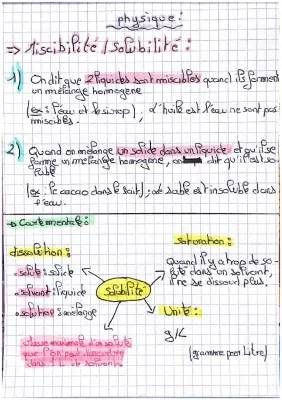 physique :
⇒ Miscibilité / Solubilité :
1) On dit que 2 liquides sont miscibles quand ils forment
un mélange homogène
(ex : l'eau et le sirop), d'huile est l'eau ne sont pas
miscibles.
2) Quand on mélange un solide dans un liquide et qu'il se
forme un mélange homogène, on dit qu'il est so-
luble
(ex : le cacao dans le lait), le sable est insoluble dans
l'eau.
→ Carte mentale :
dissolution :
• soluté : solide
• solvant : liquide
• solution : mélange
masse maximale d'un soluté
que l'on peut dissoudre
dans 1 L de solvant.
Solubilité
saturation :
Quand il y a trop de so-
luté dans un solvant,
il ne se dissout plus.
Unité :
g/L
(gramme par Litre)